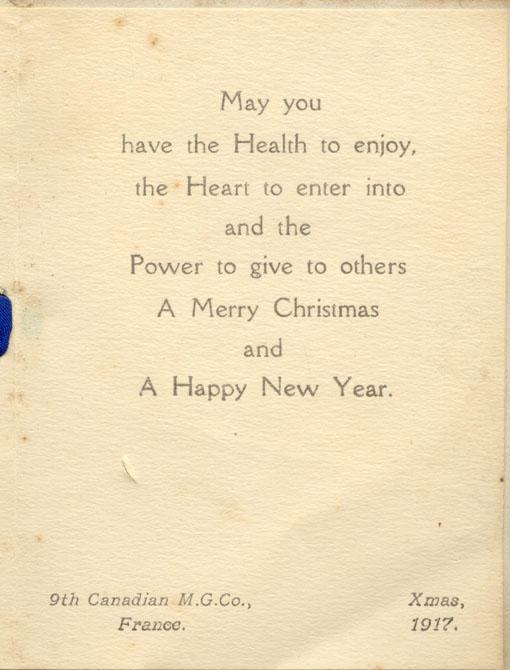 May you
have the Health to enjoy,
the Heart to enter into
and the
Power to give to others
A Merry Christmas
and
A Happy New Year.
9th Canadian M.G.Co., Xmas,
France. 1917.